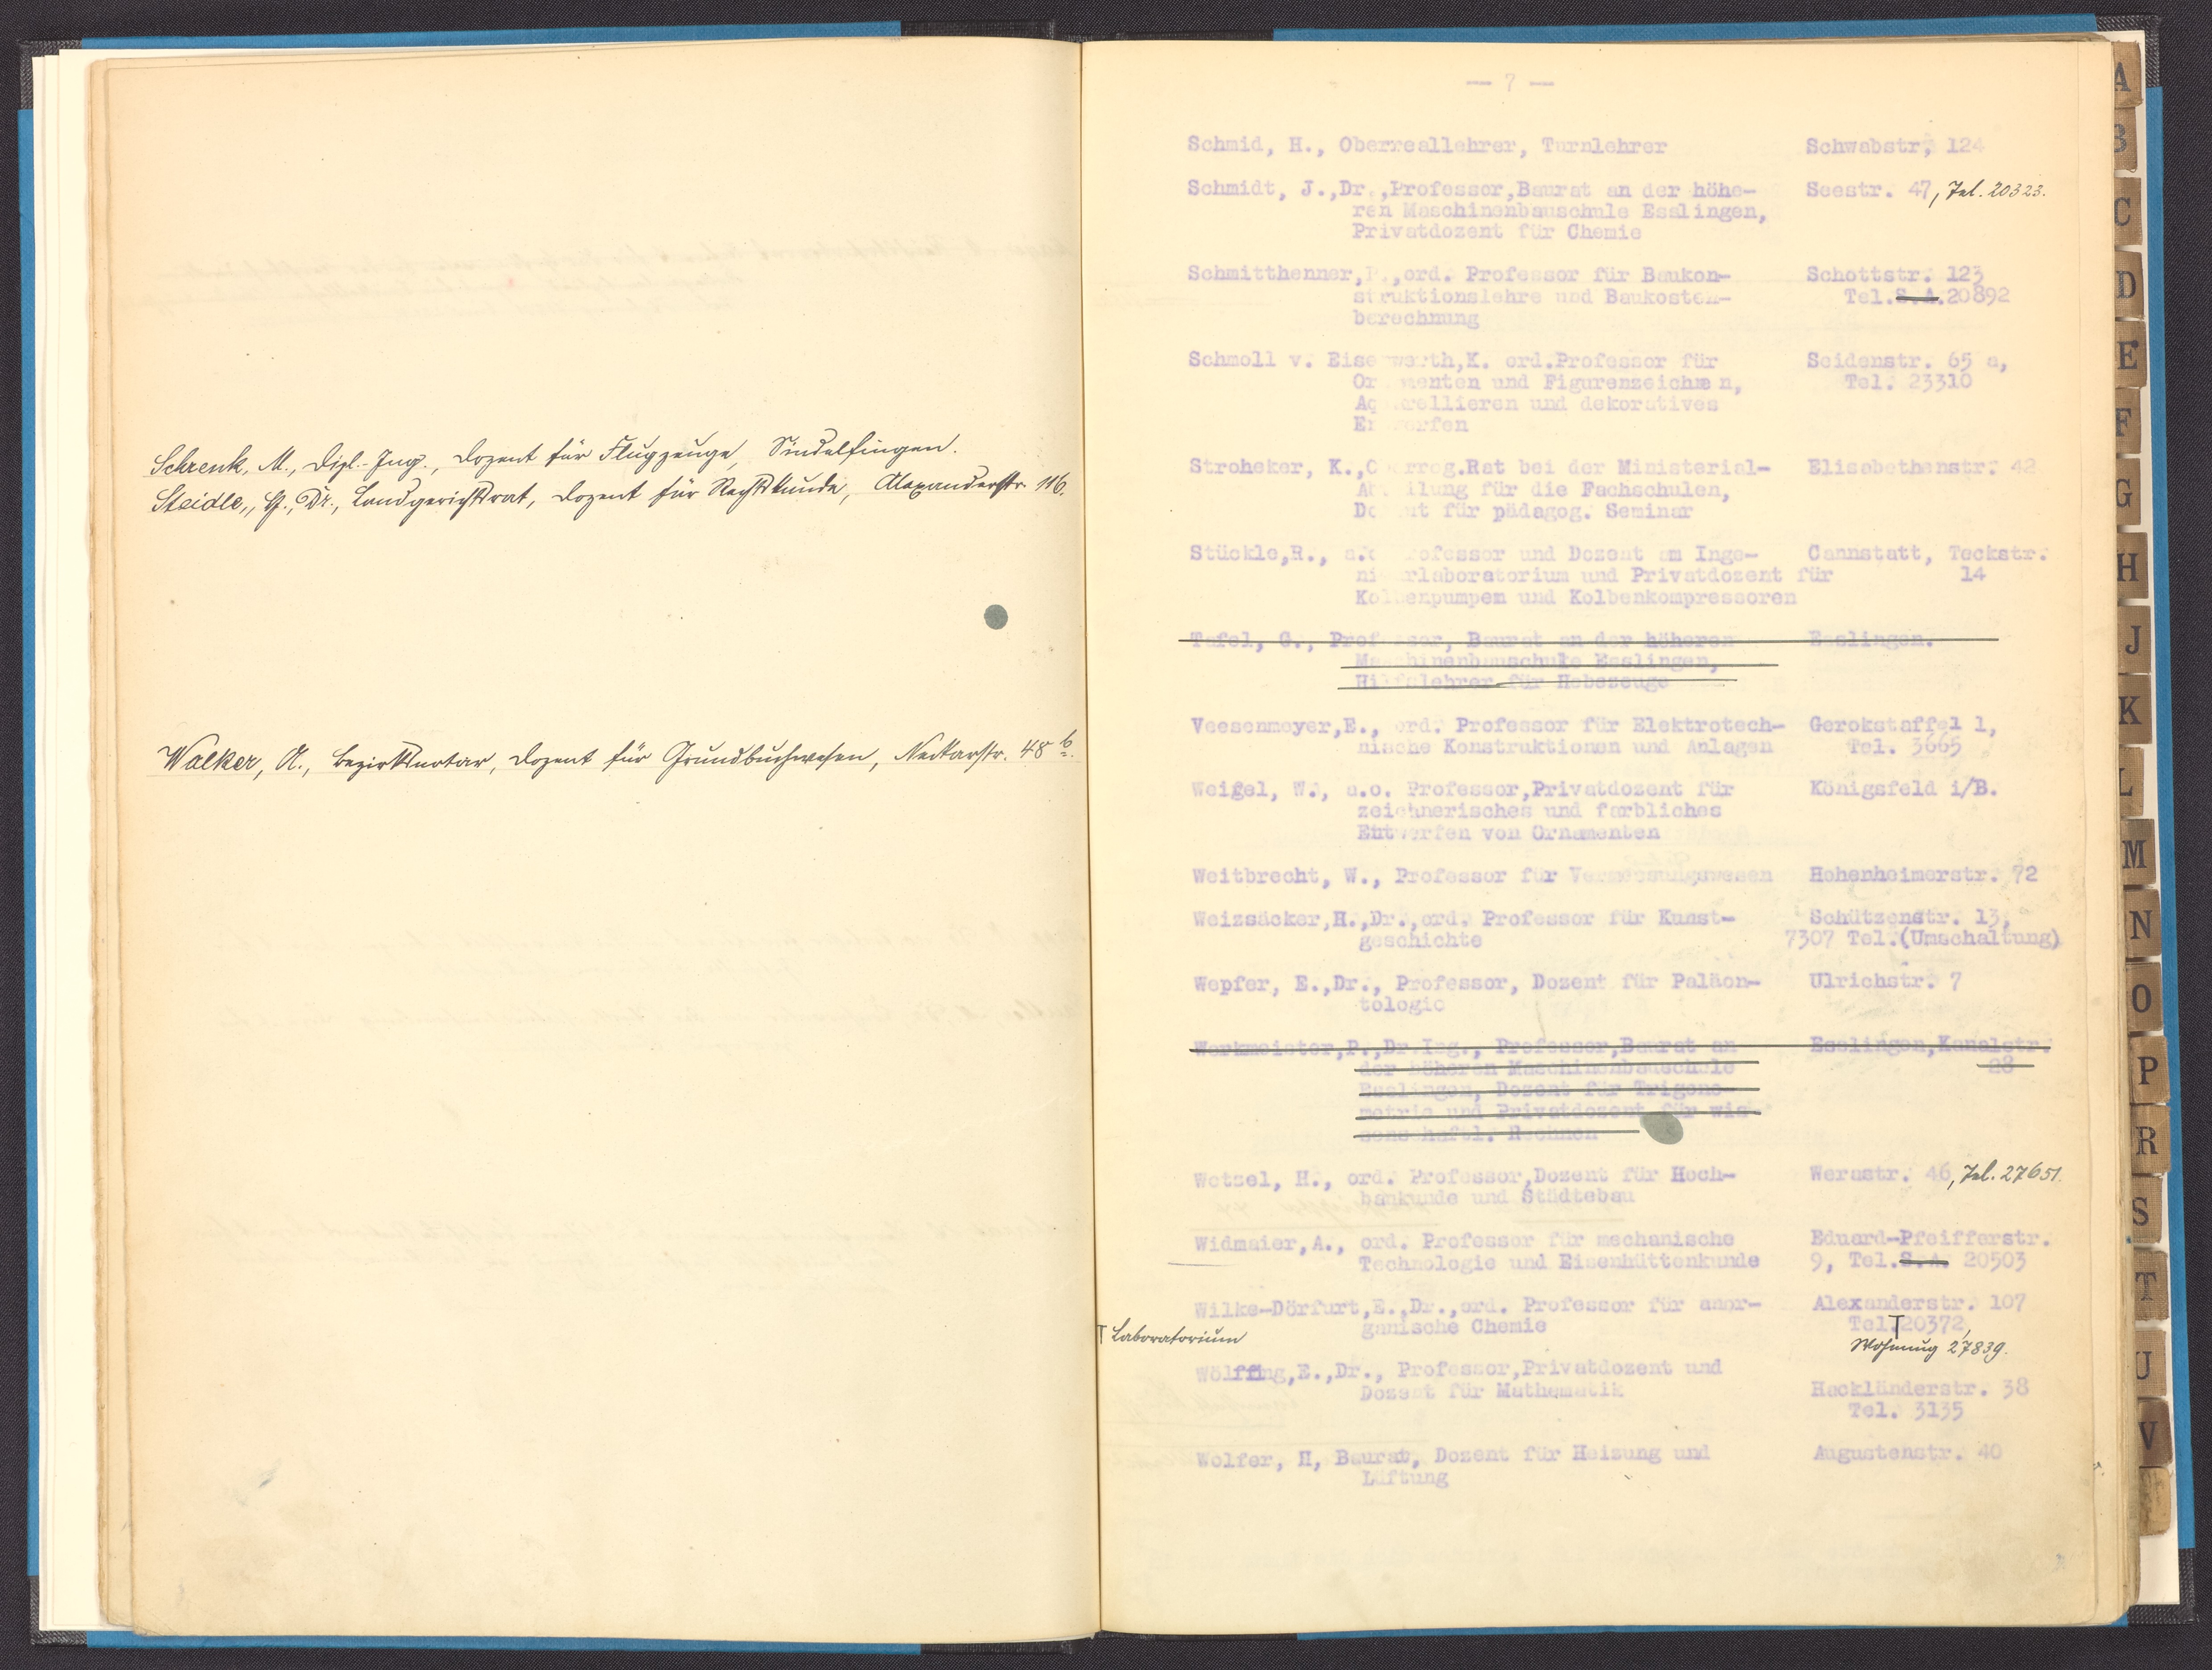 Schrenk, M., Dipl.-Ing., Dozent für Flugzeuge, Sindelfingen.
Steidle, Dr., Landgerichtsrat, Dozent für Rechtskunde, Alexanderstr. 116.
Walker, A., Bezirksnotar, Dozent für Grundbuchwesen, Neckarstr. 48 b.
— 7 —
Schmid, H., Oberreallehrer, Turnlehrer Schwabstr, 124
Schmidt, J.,Dr.,Professor,Baurat an der höhe- Seestr. 47, Tel. 20323.
ren Maschinenbauschule Esslingen,
Privatdozent für Chemie
Schmitthenner,P.,ord. Professor für Baukon- Schottstr. 123
struktionslehre und Baukosten- Tel.S.A.20892
berechnung
Schmoll v. Eisenwerth,K. ord.Professor für Seidenstr. 65 a,
Ornamenten und Figurenzeichnen, Tel. 23310
Aquarellieren und dekoratives
Entwerfen
Stroheker, K.,Oberreg.Rat bei der Ministerial- Elisabethenstr. 42
Abteilung für die Fachschulen,
Dozent für pädagog. Seminar
Stückle,R., a.o. Professor und Dozent am Inge- Cannstatt, Teckstr.
nieurlaboratorium und Privatdozent für 14
Kolbenpumpen und Kolbenkompressoren
Tafel, G., Professor, Baurat an der höheren Esslingen.
Maschinenbauschule Esslingen,
Hilfslehrer für Hebezeuge
Veesenmeyer,E., ord. Professor für Elektrotech- Gerokstaffel 1,
nische Konstruktionen und Anlagen Tel. 3665
Weigel, W., a.o. Professor,Privatdozent für Königsfeld i/B.
zeichnerisches und farbliches
Entwerfen von Ornamenten
Weitbrecht, W., Professor für Vermessungswesen Hohenheimerstr. 72
Weizsäcker,H.,Dr.,ord. Professor für Kunst- Schützenstr. 13,
geschichte 7307 Tel.(Umschaltung)
Wepfer, E.,Dr., Professor, Dozent für Paläon- Ulrichstr. 7
tologie
Werkmeister,P.,Dr.Ing., Professor,Baurat an Esslingen,Kanalstr.
der höheren Maschinenbauschule 28
Esslingen, Dozent für Trigono-
metrie und Privatdozent für wis-
senschaftl. Rechnen
Wetzel, H., ord. Professor,Dozent für Hoch- Werastr. 46, Tel. 27651.
baukunde und Städtebau
Widmaier,A., ord. Professor für mechanische Eduard-Pfeifferstr.
Technologie und Eisenhüttenkunde 9, Tel.S.A. 20503
Wilke-Dörfurt,E.,Dr.,ord. Professor für anor- Alexanderstr. 107
ganische Chemie Tel.20372,
Laboratorium Wohnung 27839.
Wölffing,E.,Dr., Professor,Privatdozent und
Dozent für Mathematik Hackländerstr. 38
Tel. 3135
Wolfer, H, Baurat, Dozent für Heizung und Augustenstr. 40
Lüftung
A
B
C
D
E
F
G
H
J
K
L
M
N
O
P
R
S
T
U
V